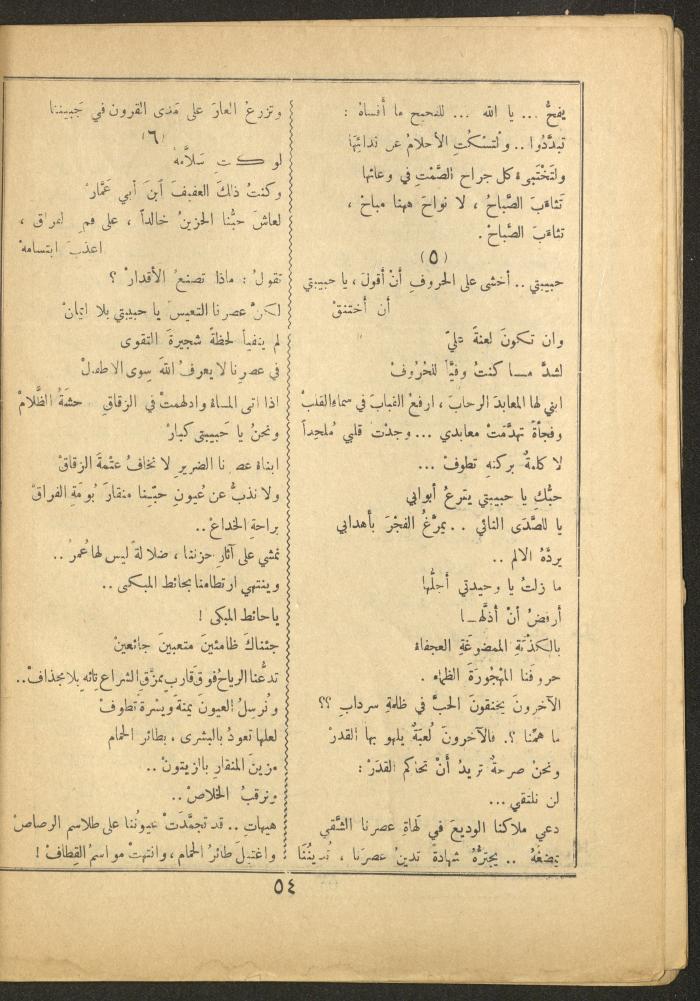 يفحُّ ... يا الله ... للفحيح ما أقساهُ :
تبدَّدُوا .. ولتسْكُتِ الأحلامُ عن ندائِها
ولتَخْتبىءْ كل جراح الصَّمْتِ في وعائها
تثاءَبَ الصَّباحُ ، لا نواحَ ههنا مباحْ ،
تثاءَبَ الصَّباحْ .
(٥)
حبيبتي .. أخشى على الحروفِ أنْ أقولَ ، يا حبيبتي
أن أختنقْ
وان تكونَ لعنةً عليّ
لشدَّ مسا كنتُ وفيَّاً للحُرُوفْ
ابني لها المعابدَ الرحابَ ، ارفعُ القبابَ في سماءِ القلبْ
وفجأةً تهدَّمَتْ معابدي ... وجدْتُ قلبي مُلحِداً
لا كلمةٌ بركنهِ تطوفْ ...
حبُّكِ يا حبيبتي يقرعُ أبوابي
يا للصَّدَى النائي .. يمرِّغُ الفجْرَ بأهدابي
يردَّهُ الالم ..
ما زلتُ يا وحيدتي أجلُّها
أرفضُ أنْ أذلَّها
بالكذْبَةِ الممضوغةِ العجفاءْ
حروفَنا المهْجُورَةَ الظماء .
الآخرونَ يخنقونَ الحبَّ في ظلمةِ سردابِ ؟؟
ما همَّنا ؟. فالآخرونَ لُعبَةٌ يلهو بها القدرْ
ونحنُ صرخةٌ تريدُ أنْ تحاكم القدَرْ :
لن نلتقي ...
دعي ملاكنا الوديعَ في لَهاةِ عصرنا الشَّقي
يمضغُهُ .. يجترُّهُ شهادةً تدينُ عصرَنا ، تُدينُنَا
وتزرعُ العارَ على مَدى القرون في جَبيننا
(٦)
لو كنتِ سَلاَّمهْ
وكنتُ ذلكَ العفيفَ ابنَ أبي عَمَّارْ
لعاشَ حبُّنا الحزينُ خالداً ، على فمِ العراق ،
اعذبَ ابتسامهْ
تقولُ : ماذا تصنعُ الأقدارْ ؟
لكنَّ عصرنا التعيسَ يا حبيبتي بلا ايمانْ
لم يتفيأ لحظةً شجيرةَ التقوى
في عصرنا لا يعرفُ اللهَ سِوى الاطفالْ
اذا اتى المساءُ وادلهمتْ في الزقاقِ حشمَةُ الظَّلامْ
ونحنُ يا حَبيبتي كبارْ
ابناءُ عصرنا الضريرِ لا نخافُ عتْمةَ الزقاقْ
ولا نذبُّ عن عُيونِ حبِّنا منقارَ بُومَةِ الفراقْ
براحةِ الخداعْ ..
نمشي على آثارِ حزننا ، ضلالةً ليس لها عُمرُ ..
وينتهي ارتطامنا بحائط المبكى ..
يا حائط المبكى !
جئناكَ ظامئينَ متعبينَ جائعينْ
تدفُّعنا الرياحُ فوق قاربٍ ممزَّق الشراعِ تِائهٍ بلا مجذافْ ..
ونُرسلُ العيونَ يمنةً ويسْرةً تطوفْ
لعلها تعودُ بالبشرى ، بطائر الحمام
مزينَ المنقارِ بالزيتونْ ..
ونرقبُ الخلاصْ ..
هيهاتِ .. قد تجمَّدَتْ عيونُنا على طلاسم الرصاص
واغتيلَ طائرُ الحمام ، وانتهتْ مواسمُ القِطافْ !
٥٤